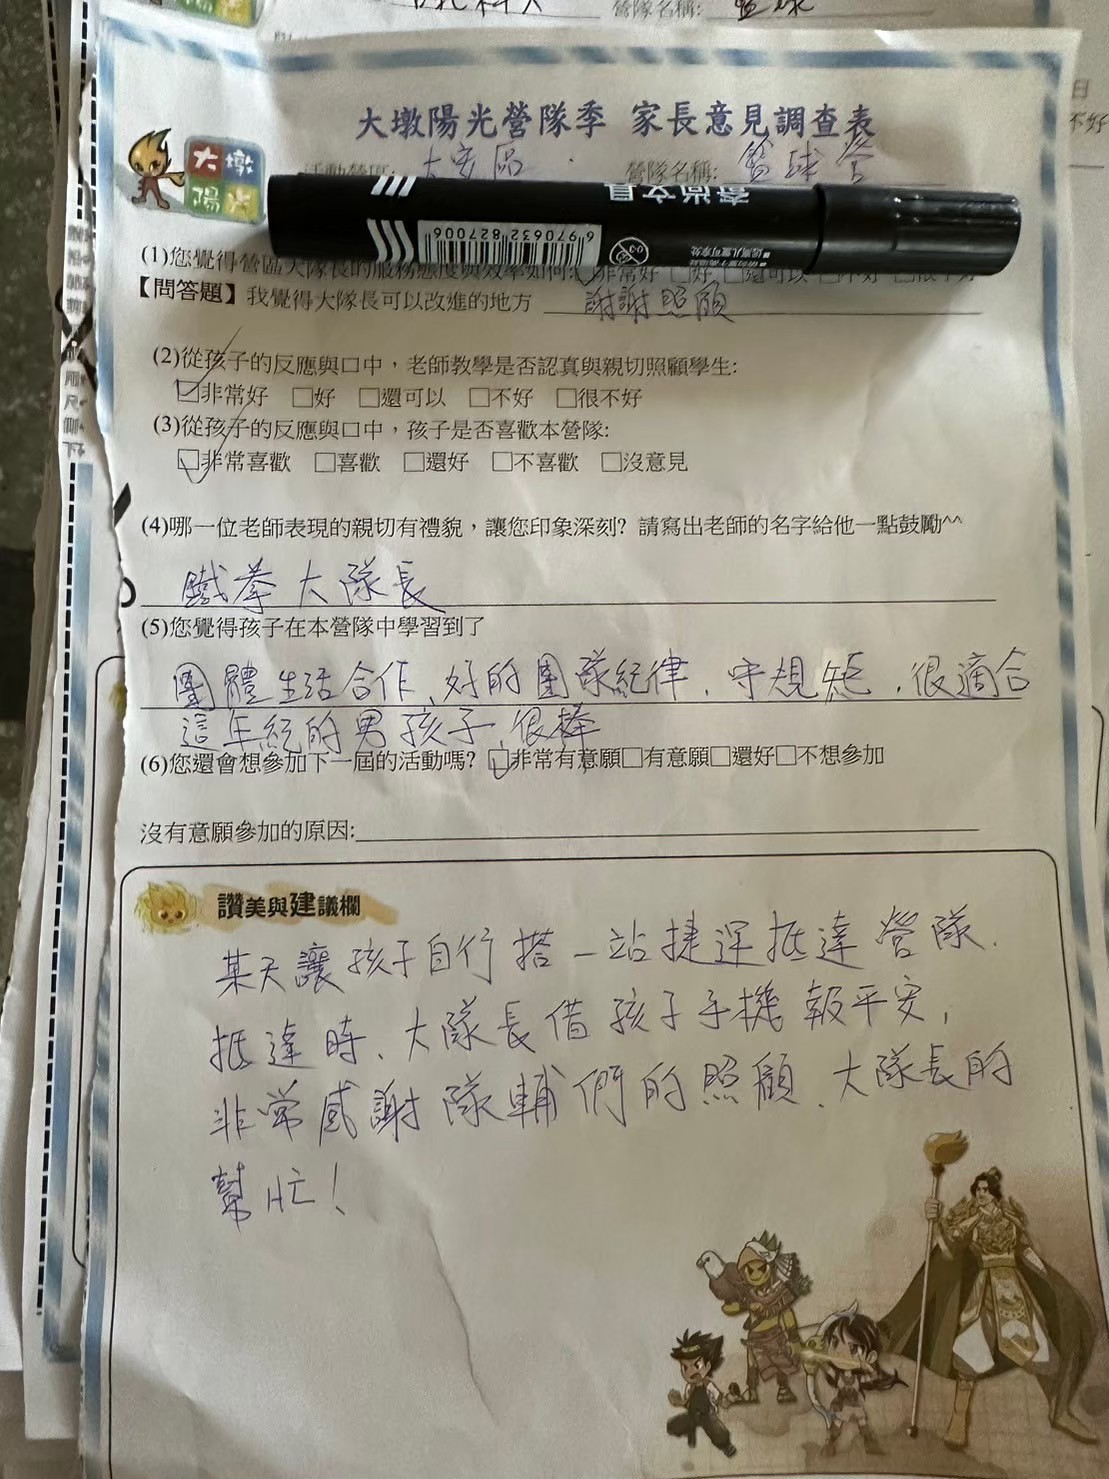 營隊名稱: 籃球
大墩陽光營隊季 家長意見調查表
大墩
陽光
大安區
營隊名稱: 籃球營
6 970632 827006
(1)您覺得營區大隊長的服務態度與效率如何: 非常好 □好 □還可以 □不好 □很不好
【問答題】我覺得大隊長可以改進的地方 謝謝照顧
(2)從孩子的反應與口中，老師教學是否認真與親切照顧學生:
☑非常好 □好 □還可以 □不好 □很不好
(3)從孩子的反應與口中，孩子是否喜歡本營隊:
☑非常喜歡 □喜歡 □還好 □不喜歡 □沒意見
(4)哪一位老師表現的親切有禮貌，讓您印象深刻? 請寫出老師的名字給他一點鼓勵^^
鐵拳大隊長
(5)您覺得孩子在本營隊中學習到了
團體生活合作、好的團隊紀律、守規矩、很適合
這年紀的男孩子、很棒
(6)您還會想參加下一屆的活動嗎? ☑非常有意願□有意願□還好□不想參加
沒有意願參加的原因:
讚美與建議欄
某天讓孩子自行搭一站捷運抵達營隊、
抵達時、大隊長借孩子手機報平安，
非常感謝隊輔們的照顧、大隊長的
幫忙！